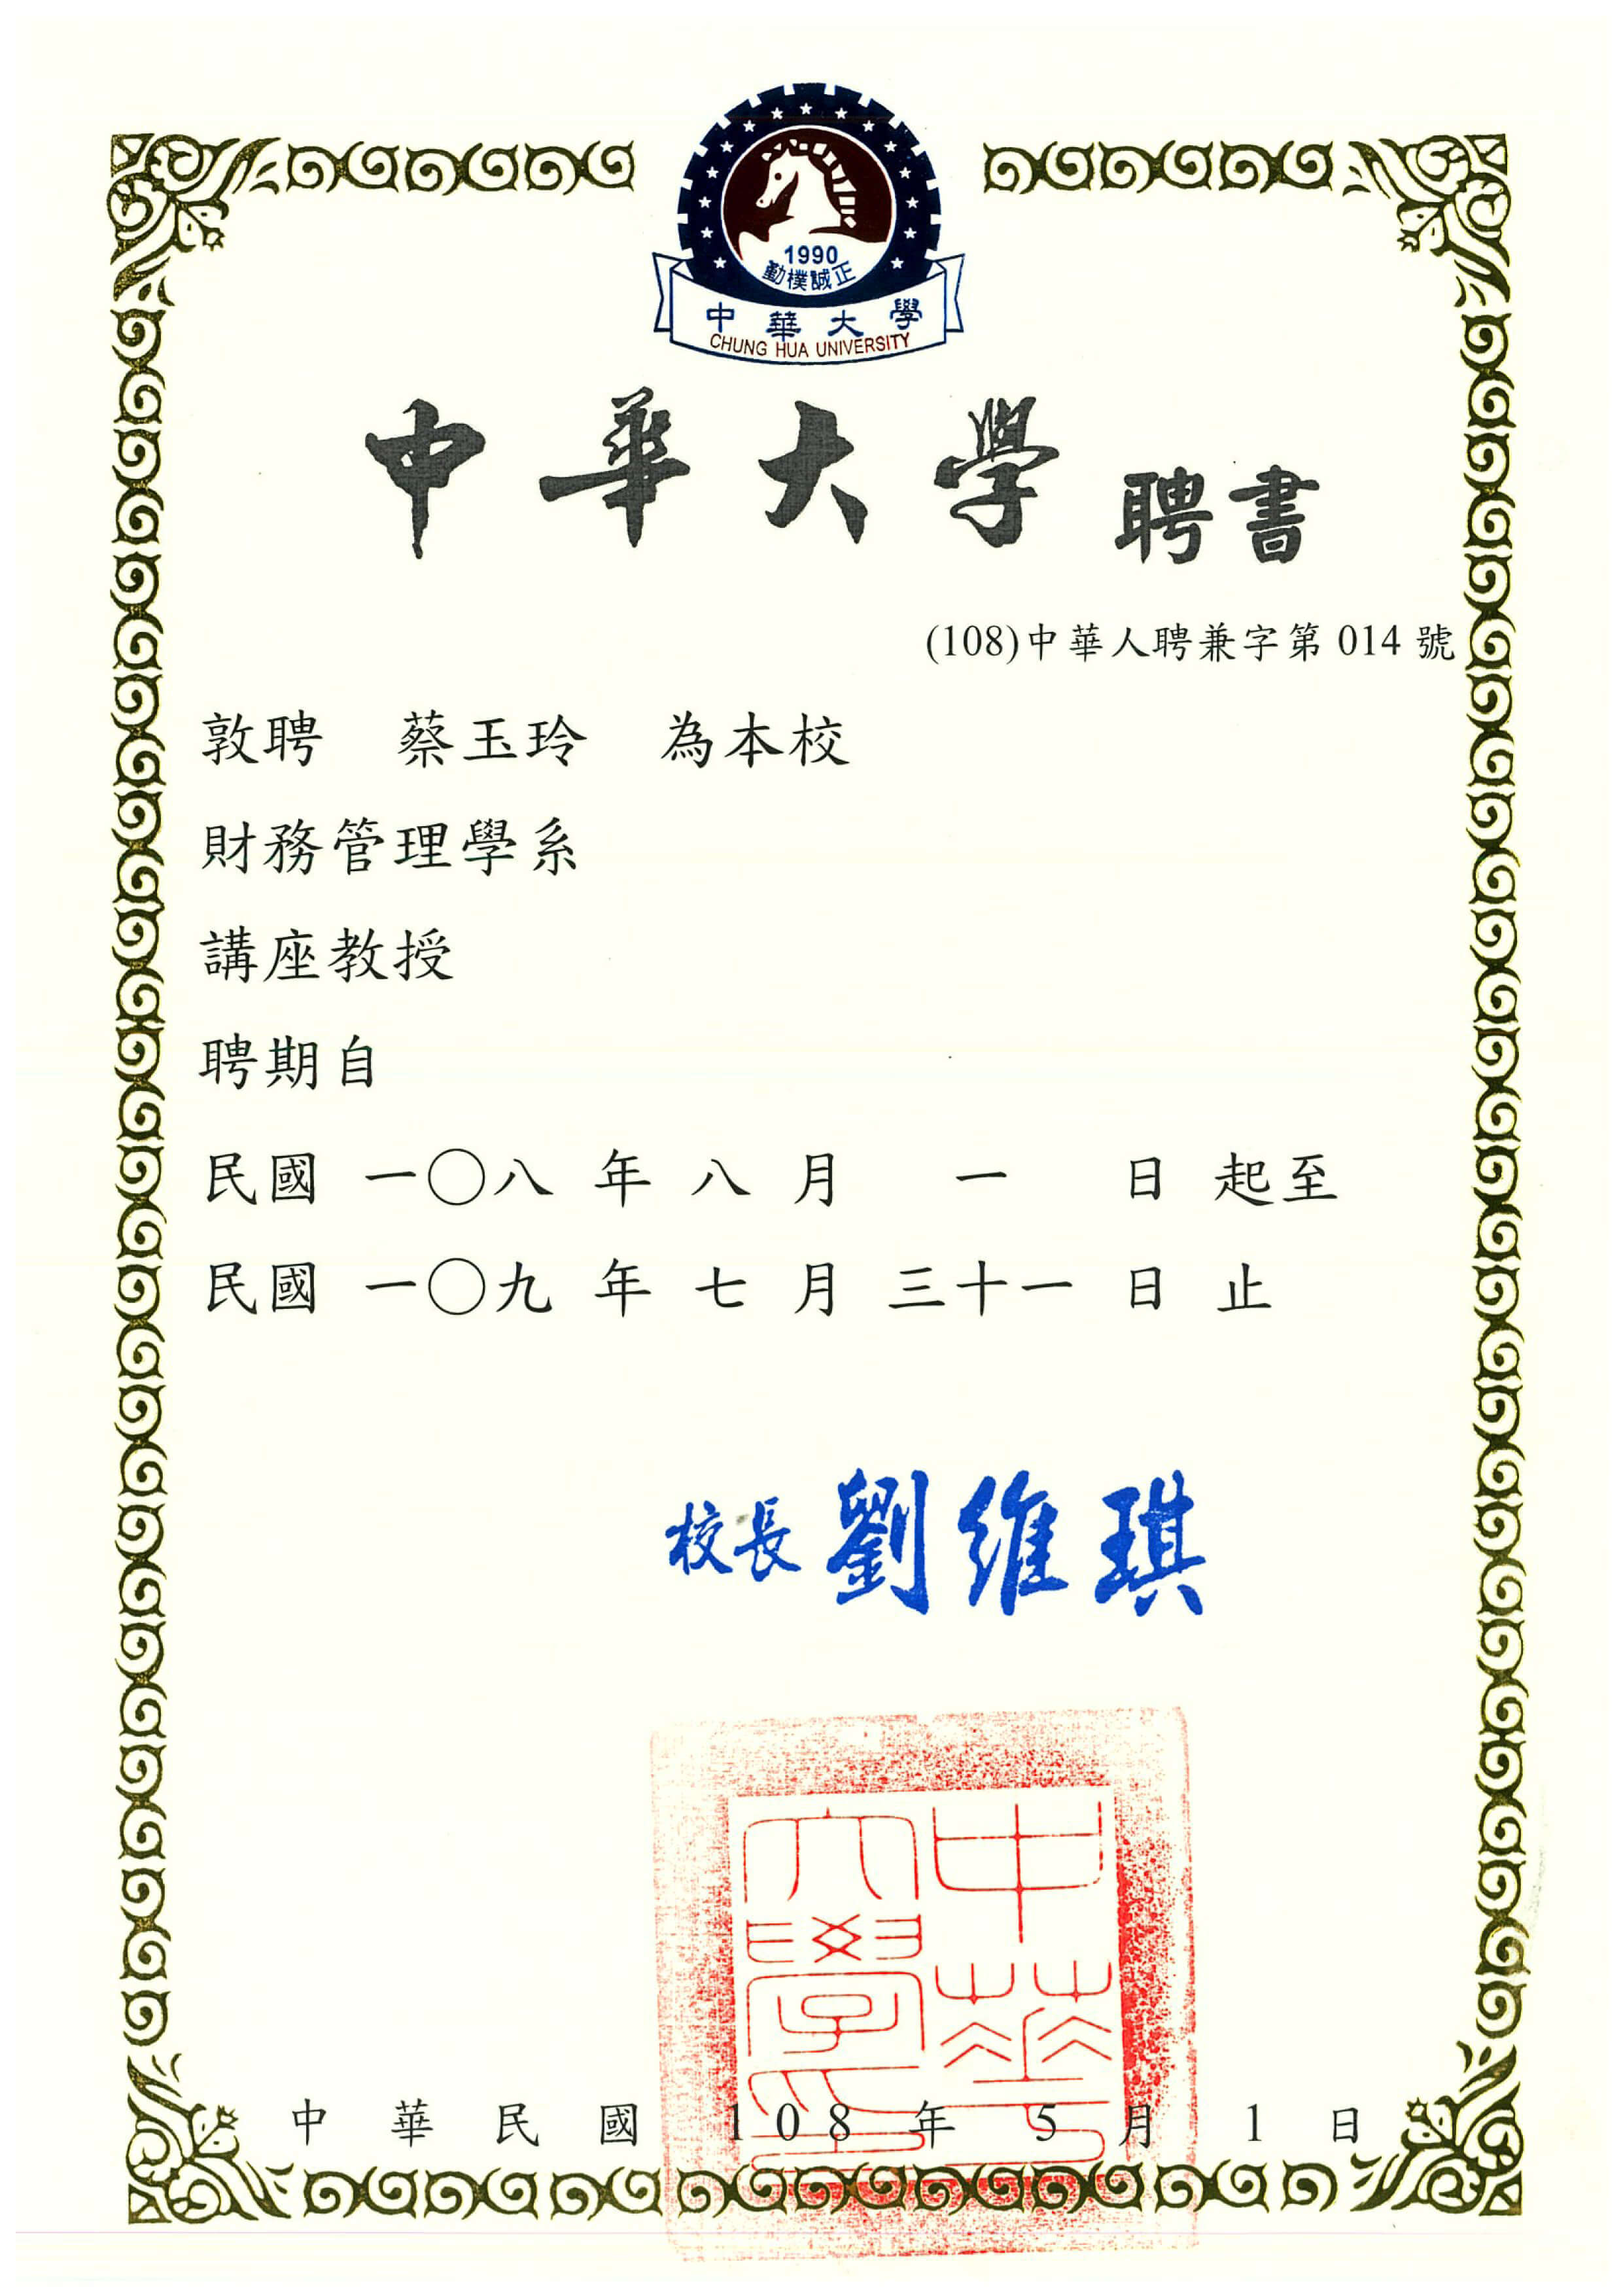 1990
勤樸誠正
中華大學
CHUNG HUA UNIVERSITY
中華大學 聘書
(108)中華人聘兼字第 014 號
敦聘 蔡玉玲 為本校
財務管理學系
講座教授
聘期自
民國 一〇八 年 八 月 一 日 起至
民國 一〇九 年 七 月 三十一 日 止
校長 劉維琪
中華
大學
中 華 民 國 108 年 5 月 1 日